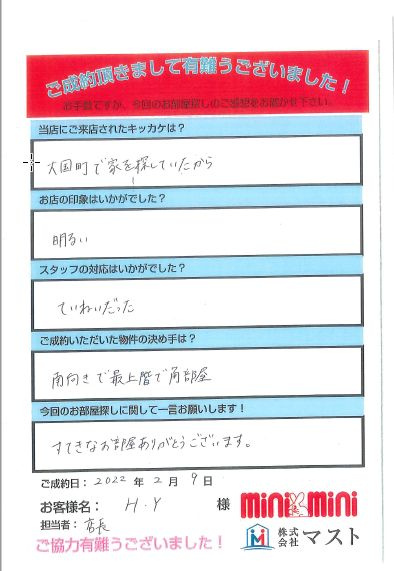 ご成約頂きまして有難うございました！
お手数ですが、今回のお部屋探しのご感想をお聞かせ下さい。
当店にご来店されたキッカケは？
大国町で家を探していたから
お店の印象はいかがでした？
明るい
スタッフの対応はいかがでした？
ていねいだった
ご成約いただいた物件の決め手は？
南向きで最上階で角部屋
今回のお部屋探しに関して一言お願いします！
すてきなお部屋ありがとうございます。
ご成約日：2022年2月9日
お客様名：H.Y様
担当者：店長
ご協力有難うございました！
mini mini
株式会社マスト